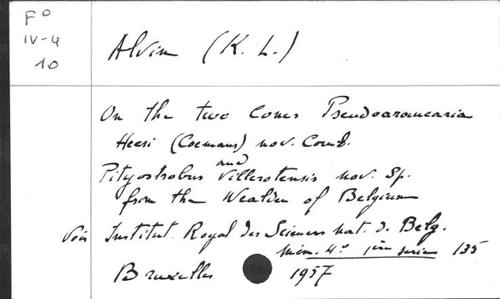 Fº
IV-4
10
Alvin (K. L.)
On the two Cones Pseudoaraucaria
Heeri (Coemans) nov. Comb.
and
Pityostrobus Villerotensis nov. Sp.
from the Wealden of Belgium
Voir Institut. Royal des Sciences nat. d. Belg.
Mém. 4º 1ère série 135
Bruxelles 1957